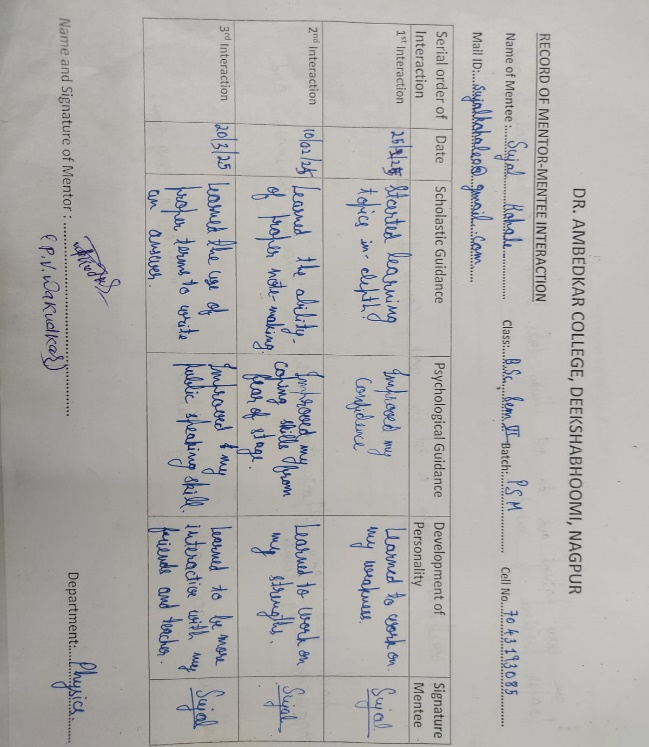 DR. AMBEDKAR COLLEGE, DEEKSHABHOOMI, NAGPUR
RECORD OF MENTOR-MENTEE INTERACTION
Name of Mentee :.... Sujal Kahale ........ Class:... B.Sc, Sem VI Batch:... PSM ........ Cell No... 7043193085
Mail ID:... @gmail.com ....
Serial order of Interaction Date Scholastic Guidance Psychological Guidance Development of Personality Signature Mentee
1st Interaction Started learning topics in-depth. Improved my confidence Learned to work on my weakness. Sujal
2nd Interaction 10/02/25 Learned the ability of proper note-making. Improved my coping skills from fear of stage. Learned to work on my strengths. Sujal
3rd Interaction 20/3/25 Learned the use of proper terms to write an answer. Improved my public speaking skill. Learned to be more interactive with my friends and teacher. Sujal
Name and Signature of Mentor : ........
(P.V. Wakudkar)
Department:.... Physics ....